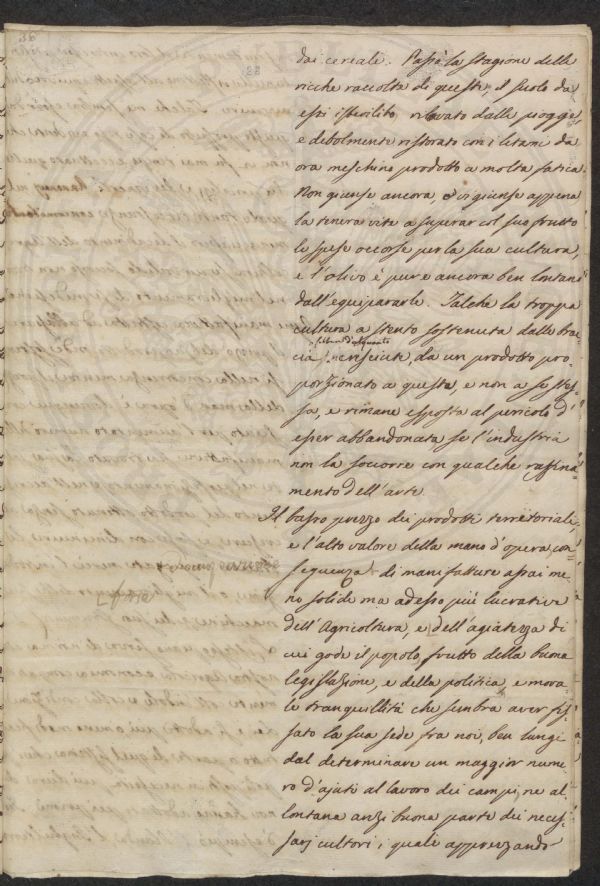 dai cereale. Passò la stagione delle
ricche raccolte di queste, il suolo da
essi isterilito rilavato dalle piogge
e debolmente ristorato con i letami dà
ora meschino prodotto a molta fatica.
Non giunse ancora o vi giunse appena
la tenera vite a superar col suo frutto
le spese occorse per la sua cultura,
e l'olivo è pure ancora ben lontano
dall'equipararle. Talche la troppa
cultura a stento sostenuta dalle brac-
sebben d'alquanto
cia cresciute, da un prodotto pro-
porzionato a questa, e non a se stes-
sa, e rimane esposta al pericolo d'
esser abbandonata se l'industria
non la soccorre con qualche raffina-
mento dell'arte.
Il basso prezzo dei prodotti territoriali,
e l'alto valore della mano d'opera, con-
seguenza di manifatture assai me-
no solide ma adesso più lucrative
dell'Agricoltura, e dell'agiatezza di
cui gode il popolo, frutto della buona
legislazione, e della politica, e mora-
le tranquillità che sembra aver fis-
sato la sua sede fra noi, ben lungi
dal determinare un maggior nume-
ro d'ajuti al lavoro dei campi, ne al-
lontana anzi buona parte dei neces-
sarj cultori, i quali apprezzando